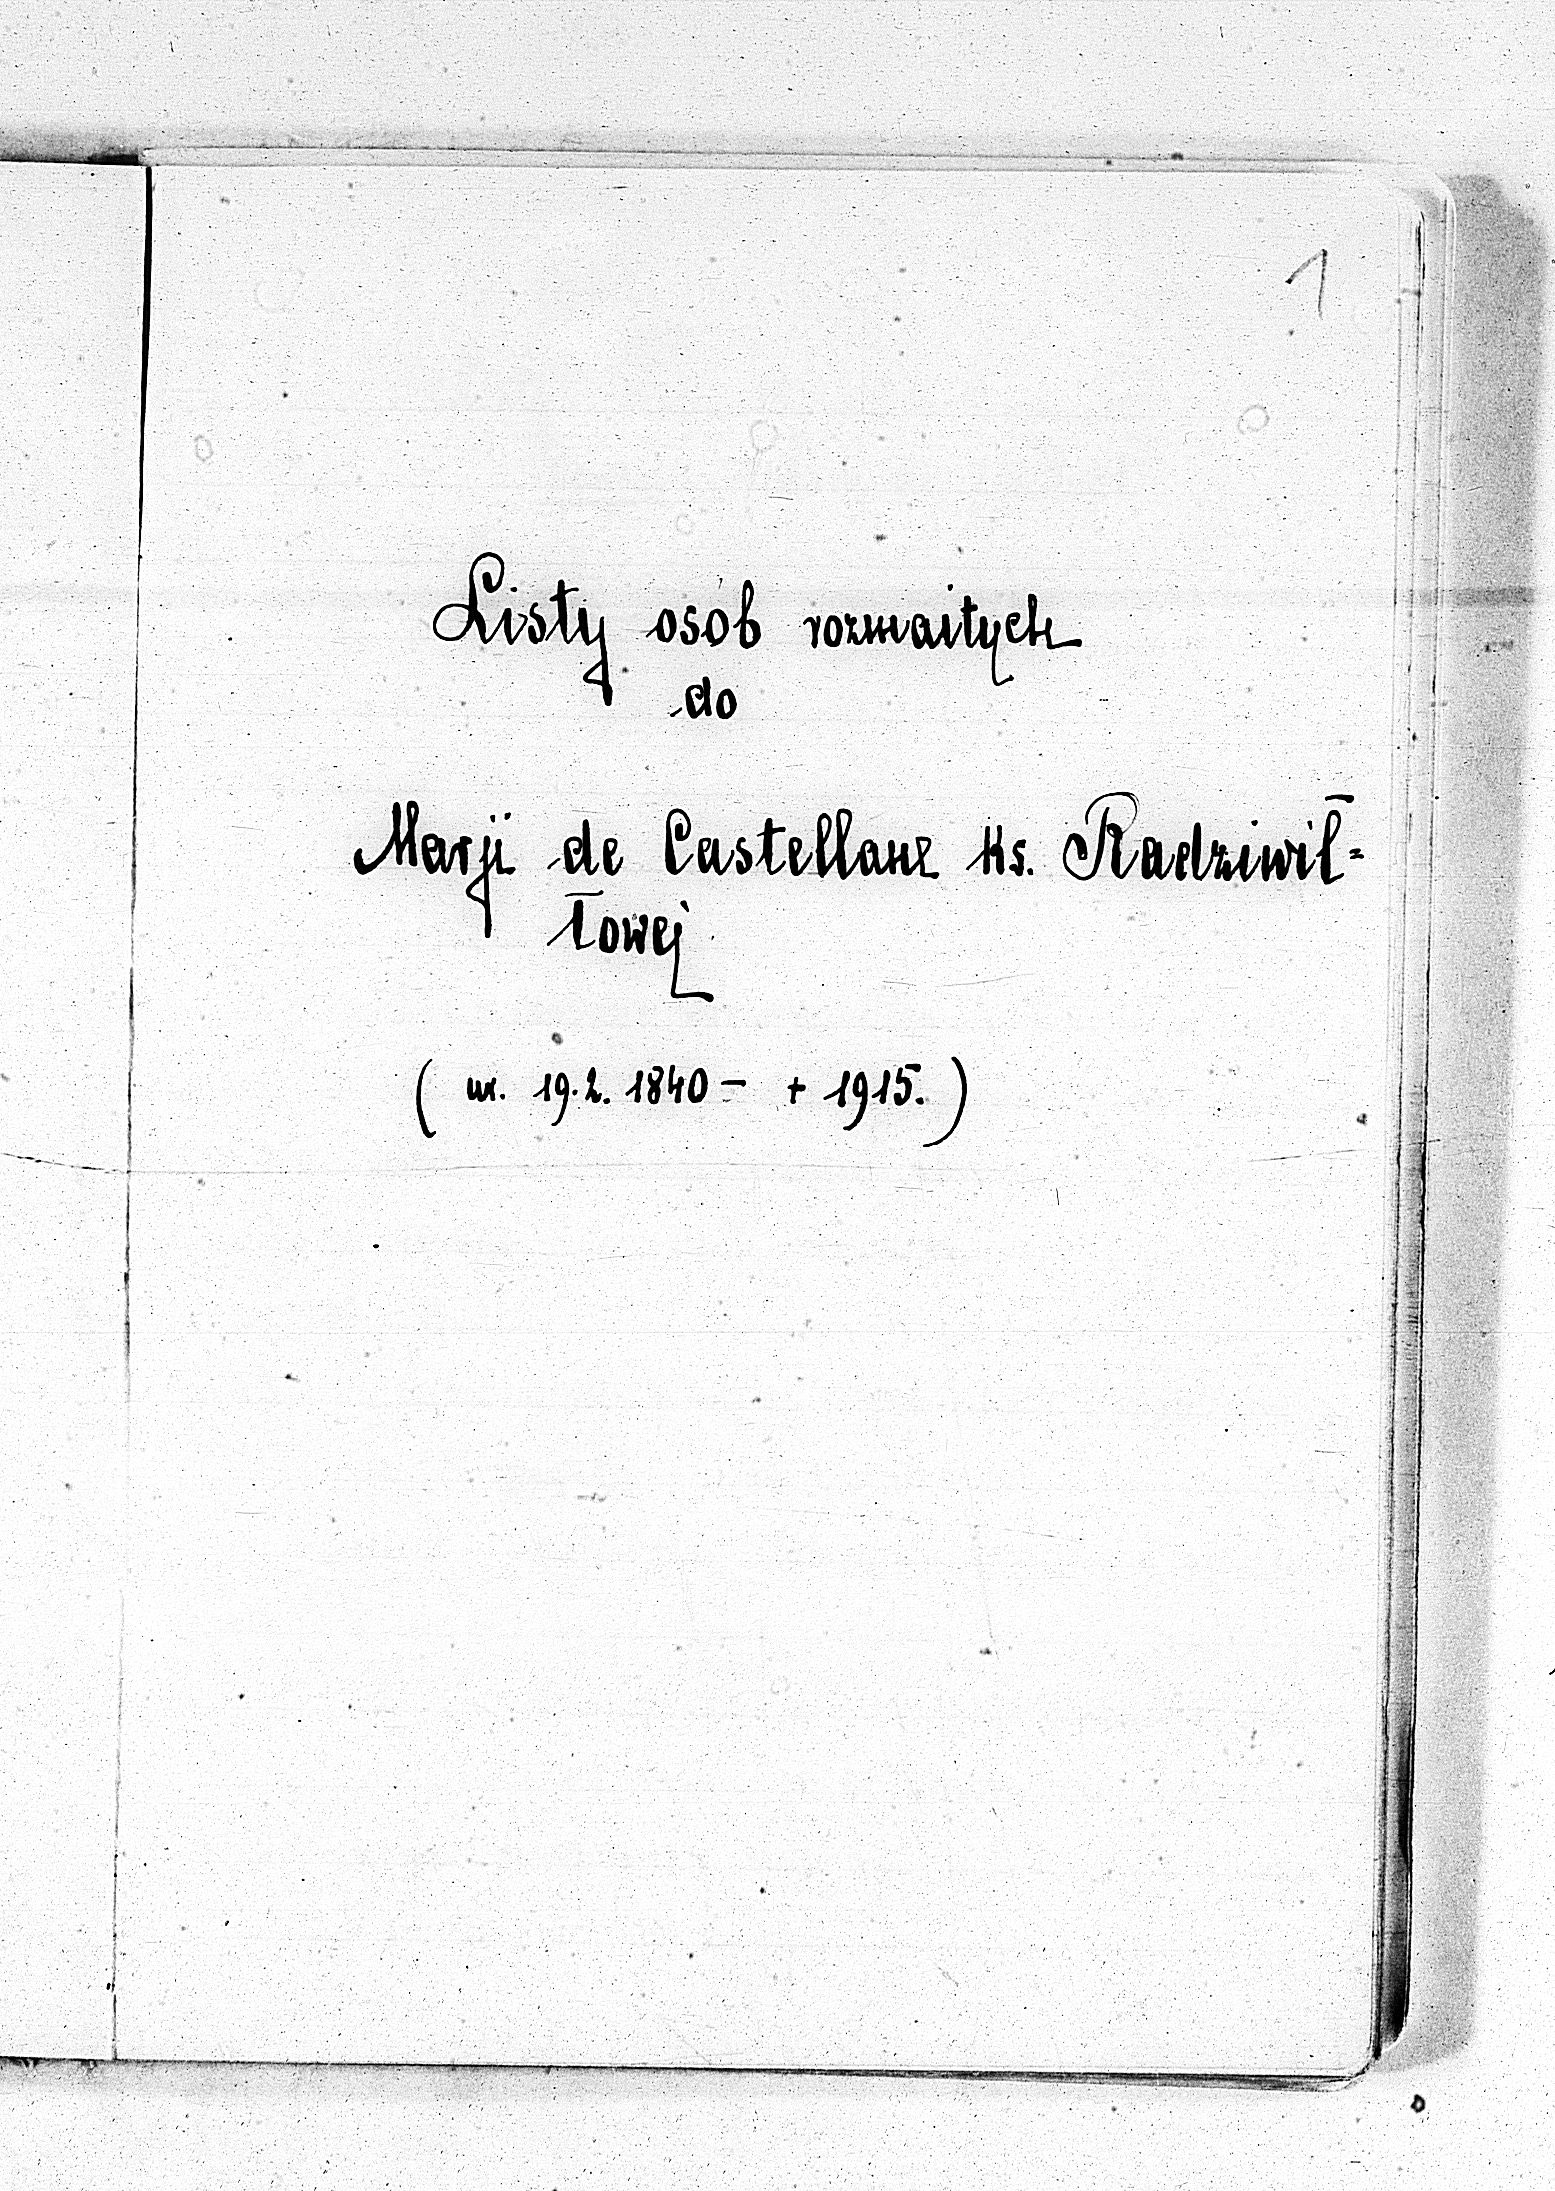 1
Listy osób rozmaitych
do
Marji de Castellane Ks. Radziwił=
łowej
( ur. 19.2. 1840 – + 1915. )